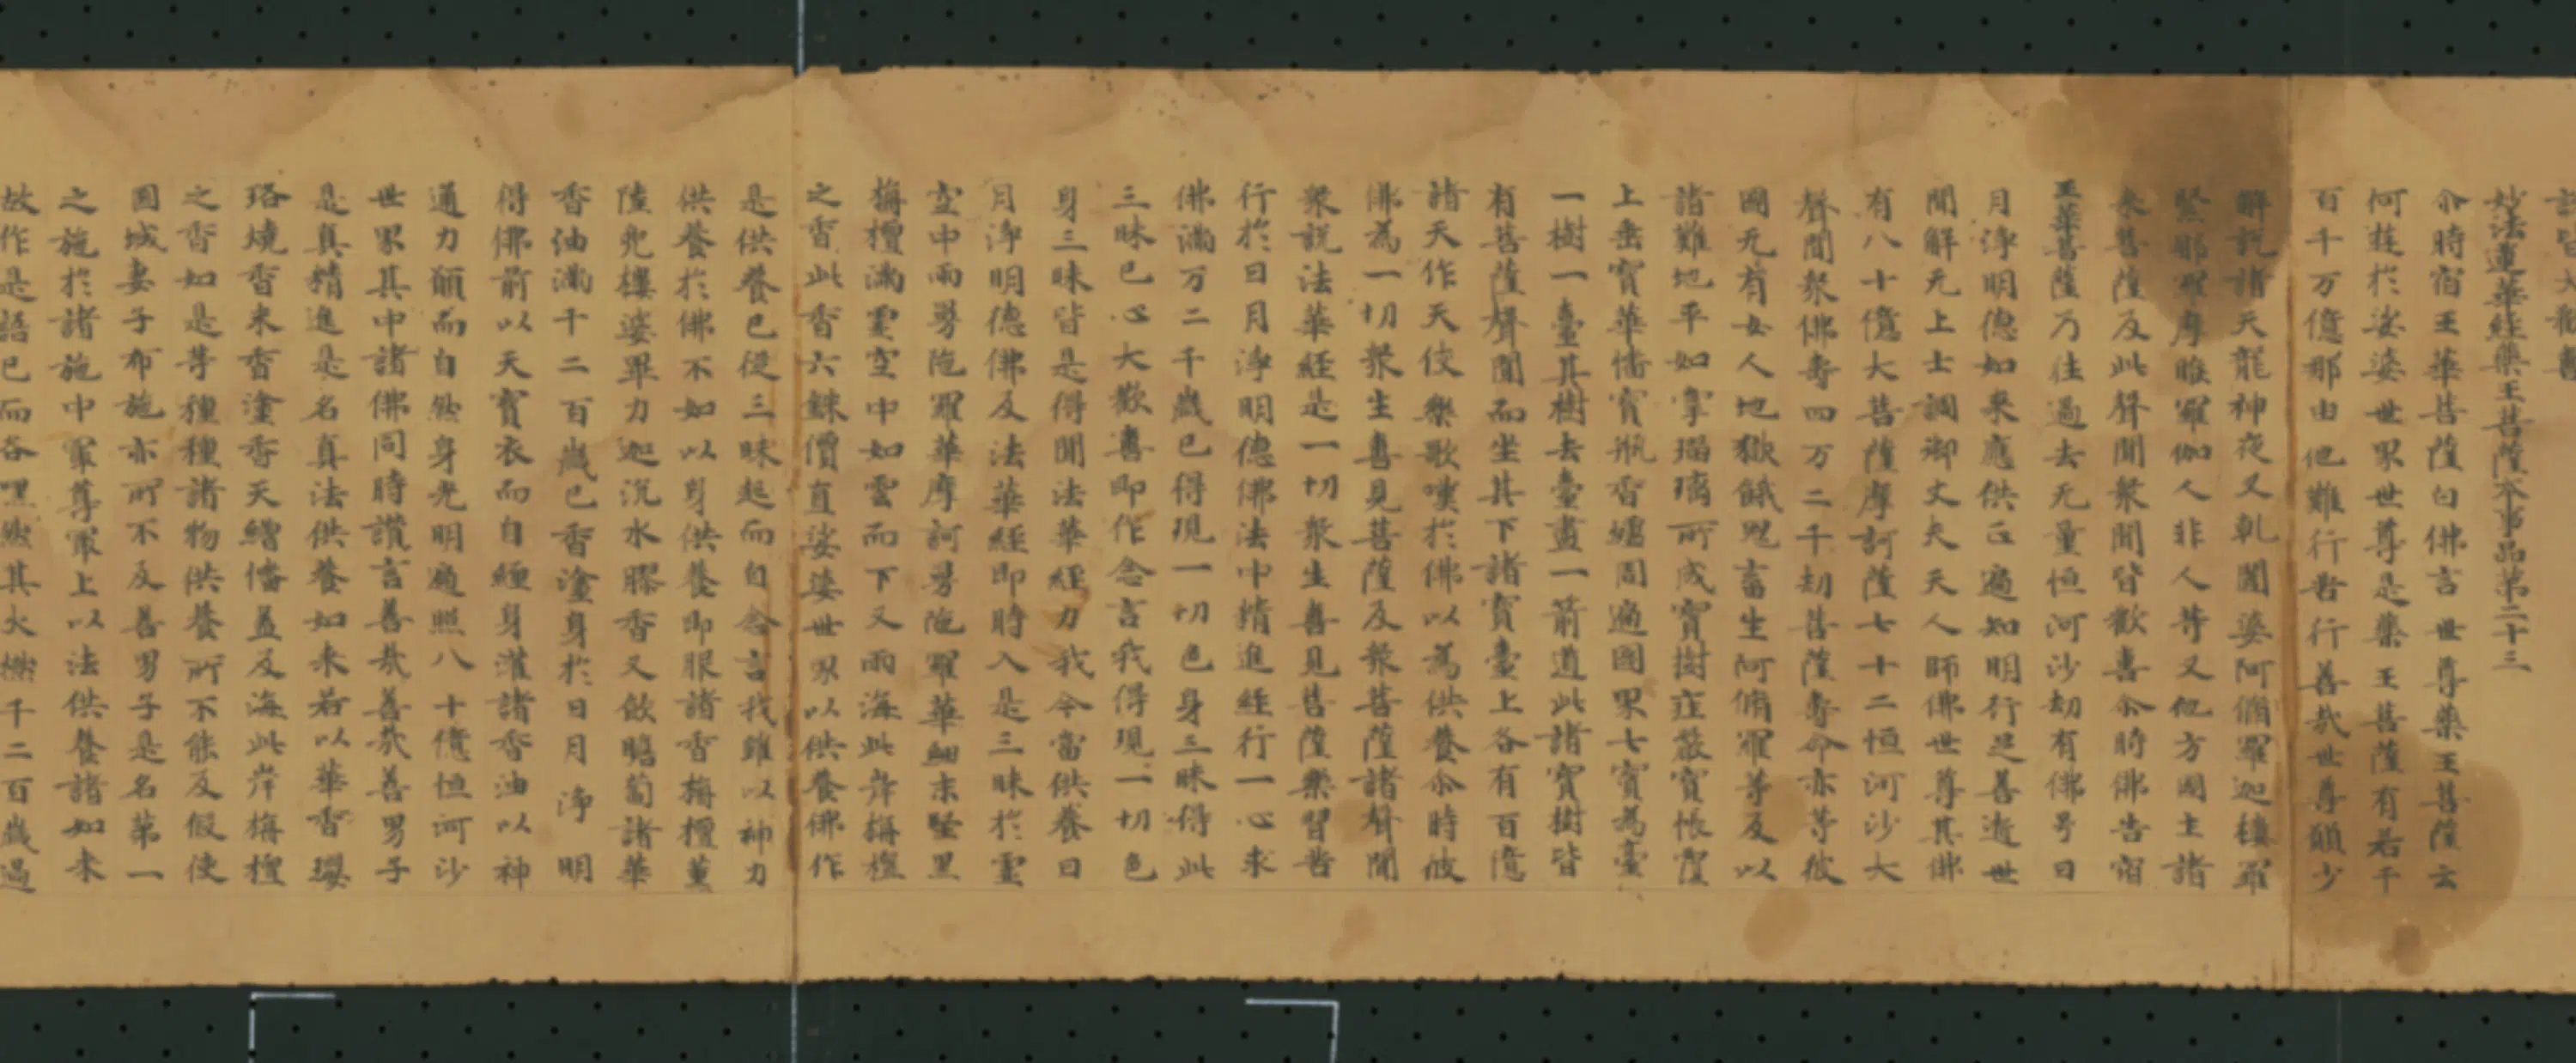 皆大歡
妙法蓮華經藥王菩薩本事品第二十三
尒時宿王華菩薩白佛言世尊藥王菩薩云
何遊於娑婆世界世尊是藥王菩薩有若干
百千万億那由他難行苦行善哉世尊願少
解說諸天龍神夜叉乹闥婆阿脩羅迦樓羅
緊那羅摩睺羅伽人非人等又他方國土諸
来菩薩及此聲聞衆聞皆歡喜尒時佛告宿
王華菩薩乃往過去无量恒河沙劫有佛号日
月淨明德如来應供正遍知明行足善逝世
間解无上士調御丈夫天人師佛世尊其佛
有八十億大菩薩摩訶薩七十二恒河沙大
聲聞衆佛壽四万二千劫菩薩壽命亦等彼
國无有女人地獄餓鬼畜生阿脩羅等及以
諸難地平如掌瑠璃所成寶樹庄嚴寶帳覆
上垂寶華幡寶瓶香爐周遍國界七寶為臺
一樹一臺其樹去臺盡一箭道此諸寶樹皆
有菩薩聲聞而坐其下諸寶臺上各有百億
諸天作天伎樂歌嘆於佛以為供養尒時彼
佛為一切衆生憙見菩薩及衆菩薩諸聲聞
衆說法華経是一切衆生憙見菩薩樂習苦
行於日月淨明德佛法中精進経行一心求
佛滿万二千歲已得現一切色身三昧得此
三昧已心大歡喜即作念言我得現一切色
身三昧皆是得聞法華経力我今當供養日
月淨明德佛及法華経即時入是三昧於虛
空中雨曼陁羅華摩訶曼陁羅華細末堅黒
栴檀滿虛空中如雲而下又雨海此岸栴檀
之香此香六銖價直娑婆世界以供養佛作
是供養已從三昧起而自念言我雖以神力
供養於佛不如以身供養即服諸香栴檀薰
陸兜樓婆畢力迦沉水膠香又飲瞻蔔諸華
香油滿千二百歲已香塗身於日月淨明
德佛前以天寶衣而自纏身灌諸香油以神
通力願而自然身光明遍照八十億恒河沙
世界其中諸佛同時讚言善哉善哉善男子
是真精進是名真法供養如来若以華香瓔
珞燒香末香塗香天繒幡盖及海此岸栴檀
之香如是等種種諸物供養所不能及假使
國城妻子布施亦所不及善男子是名第一
之施於諸施中㝡尊㝡上以法供養諸如来
故作是語已而各嘿然其火燃千二百歲過